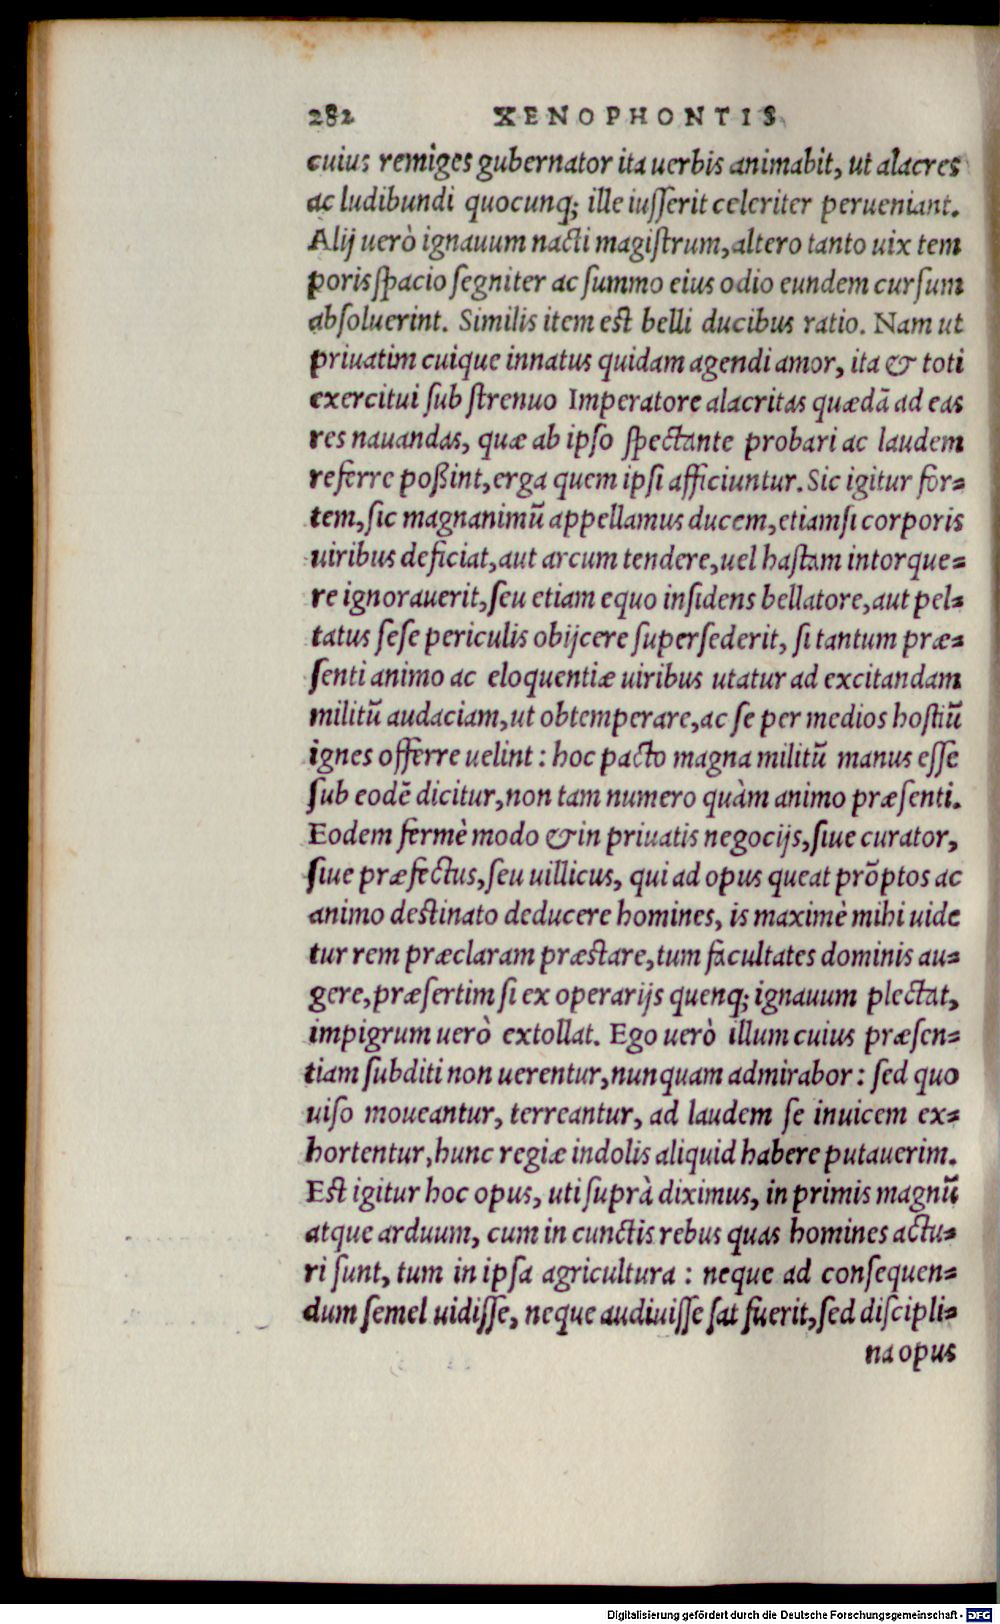 282 XENOPHONTIS
cuius remiges gubernator ita uerbis animabit, ut alacres
ac ludibundi quocunq; ille iusserit celeriter perueniant.
Alij uerò ignauum nacti magistrum, altero tanto uix tem
poris spacio segniter ac summo eius odio eundem cursum
absoluerint. Similis item est belli ducibus ratio. Nam ut
priuatim cuique innatus quidam agendi amor, ita & toti
exercitui sub strenuo Imperatore alacritas quædā ad eas
res nauandas, quæ ab ipso spectante probari ac laudem
referre poßint, erga quem ipsi afficiuntur. Sic igitur for=
tem, sic magnanimū appellamus ducem, etiamsi corporis
uiribus deficiat, aut arcum tendere, uel hastam intorque=
re ignorauerit, seu etiam equo insidens bellatore, aut pel=
tatus sese periculis obijcere supersederit, si tantum præ=
senti animo ac eloquentiæ uiribus utatur ad excitandam
militū audaciam, ut obtemperare, ac se per medios hostiū
ignes offerre uelint : hoc pacto magna militū manus esse
sub eodē dicitur, non tam numero quàm animo præsenti.
Eodem fermè modo & in priuatis negocijs, siue curator,
siue præfectus, seu uillicus, qui ad opus queat prōptos ac
animo destinato deducere homines, is maximè mihi uide
tur rem præclaram præstare, tum facultates dominis au=
gere, præsertim si ex operarijs quenq; ignauum plectat,
impigrum uerò extollat. Ego uerò illum cuius præsen=
tiam subditi non uerentur, nunquam admirabor : sed quo
uiso moueantur, terreantur, ad laudem se inuicem ex=
hortentur, hunc regiæ indolis aliquid habere putauerim.
Est igitur hoc opus, uti suprà diximus, in primis magnū
atque arduum, cum in cunctis rebus quas homines actu=
ri sunt, tum in ipsa agricultura : neque ad consequen=
dum semel uidisse, neque audiuisse sat fuerit, sed discipli=
na opus
Digitalisierung gefördert durch die Deutsche Forschungsgemeinschaft - DFG